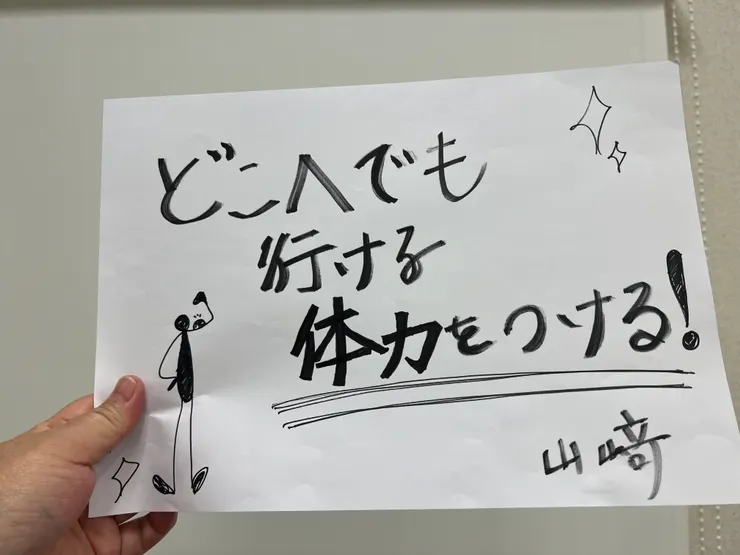 どこへでも
行ける
体力をつける!
山﨑